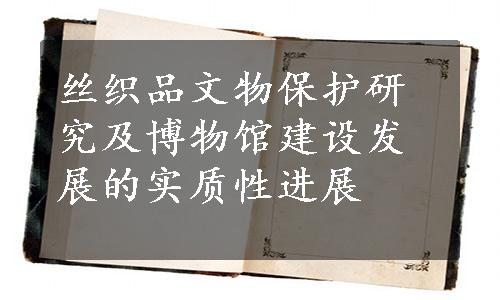 丝织品文物保护研
究及博物馆建设发
展的实质性进展